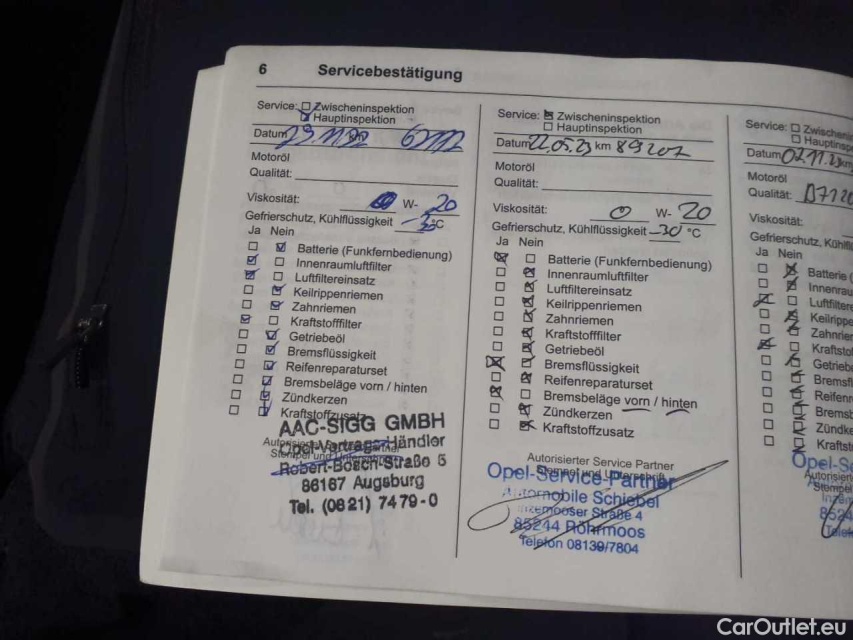 6 Servicebestätigung
Service: Zwischeninspektion
Hauptinspektion
Datum km
Motoröl
Qualität:
Viskosität: W- 20
Gefrierschutz, Kühlflüssigkeit °C
Ja Nein
Batterie (Funkfernbedienung)
Innenraumluftfilter
Luftfiltereinsatz
Keilrippenriemen
Zahnriemen
Kraftstofffilter
Getriebeöl
Bremsflüssigkeit
Reifenreparaturset
Bremsbeläge vorn / hinten
Zündkerzen
Kraftstoffzusatz
AAC-SIGG GMBH
Opel-Vertrags-Händler
Robert-Bosch-Straße 5
86167 Augsburg
Tel. (0821) 7479-0
Service: Zwischeninspektion
Hauptinspektion
Datum 22.05.23 km 89207
Motoröl
Qualität:
Viskosität: 0 W- 20
Gefrierschutz, Kühlflüssigkeit -30 °C
Ja Nein
Batterie (Funkfernbedienung)
Innenraumluftfilter
Luftfiltereinsatz
Keilrippenriemen
Zahnriemen
Kraftstofffilter
Getriebeöl
Bremsflüssigkeit
Reifenreparaturset
Bremsbeläge vorn / hinten
Zündkerzen
Kraftstoffzusatz
Autorisierter Service Partner
Stempel und Unterschrift
Opel-Service-Partner
Automobile Schiebel
Inzemooser Straße 4
85244 Röhrmoos
Telefon 08139/7804
Service: Zwischenin
Hauptinsp
Datum 02.11.23 km
Motoröl
Qualität:
Viskosität:
Gefrierschutz, Kühlflüs
Ja Nein
Batterie
Innenrau
Luftfilter
Keilrippe
Zahnrie
Kraftsto
Getrieb
Bremsfl
Reifen
Bremsb
Zündke
Kraftst
Opel-S
CarOutlet.eu